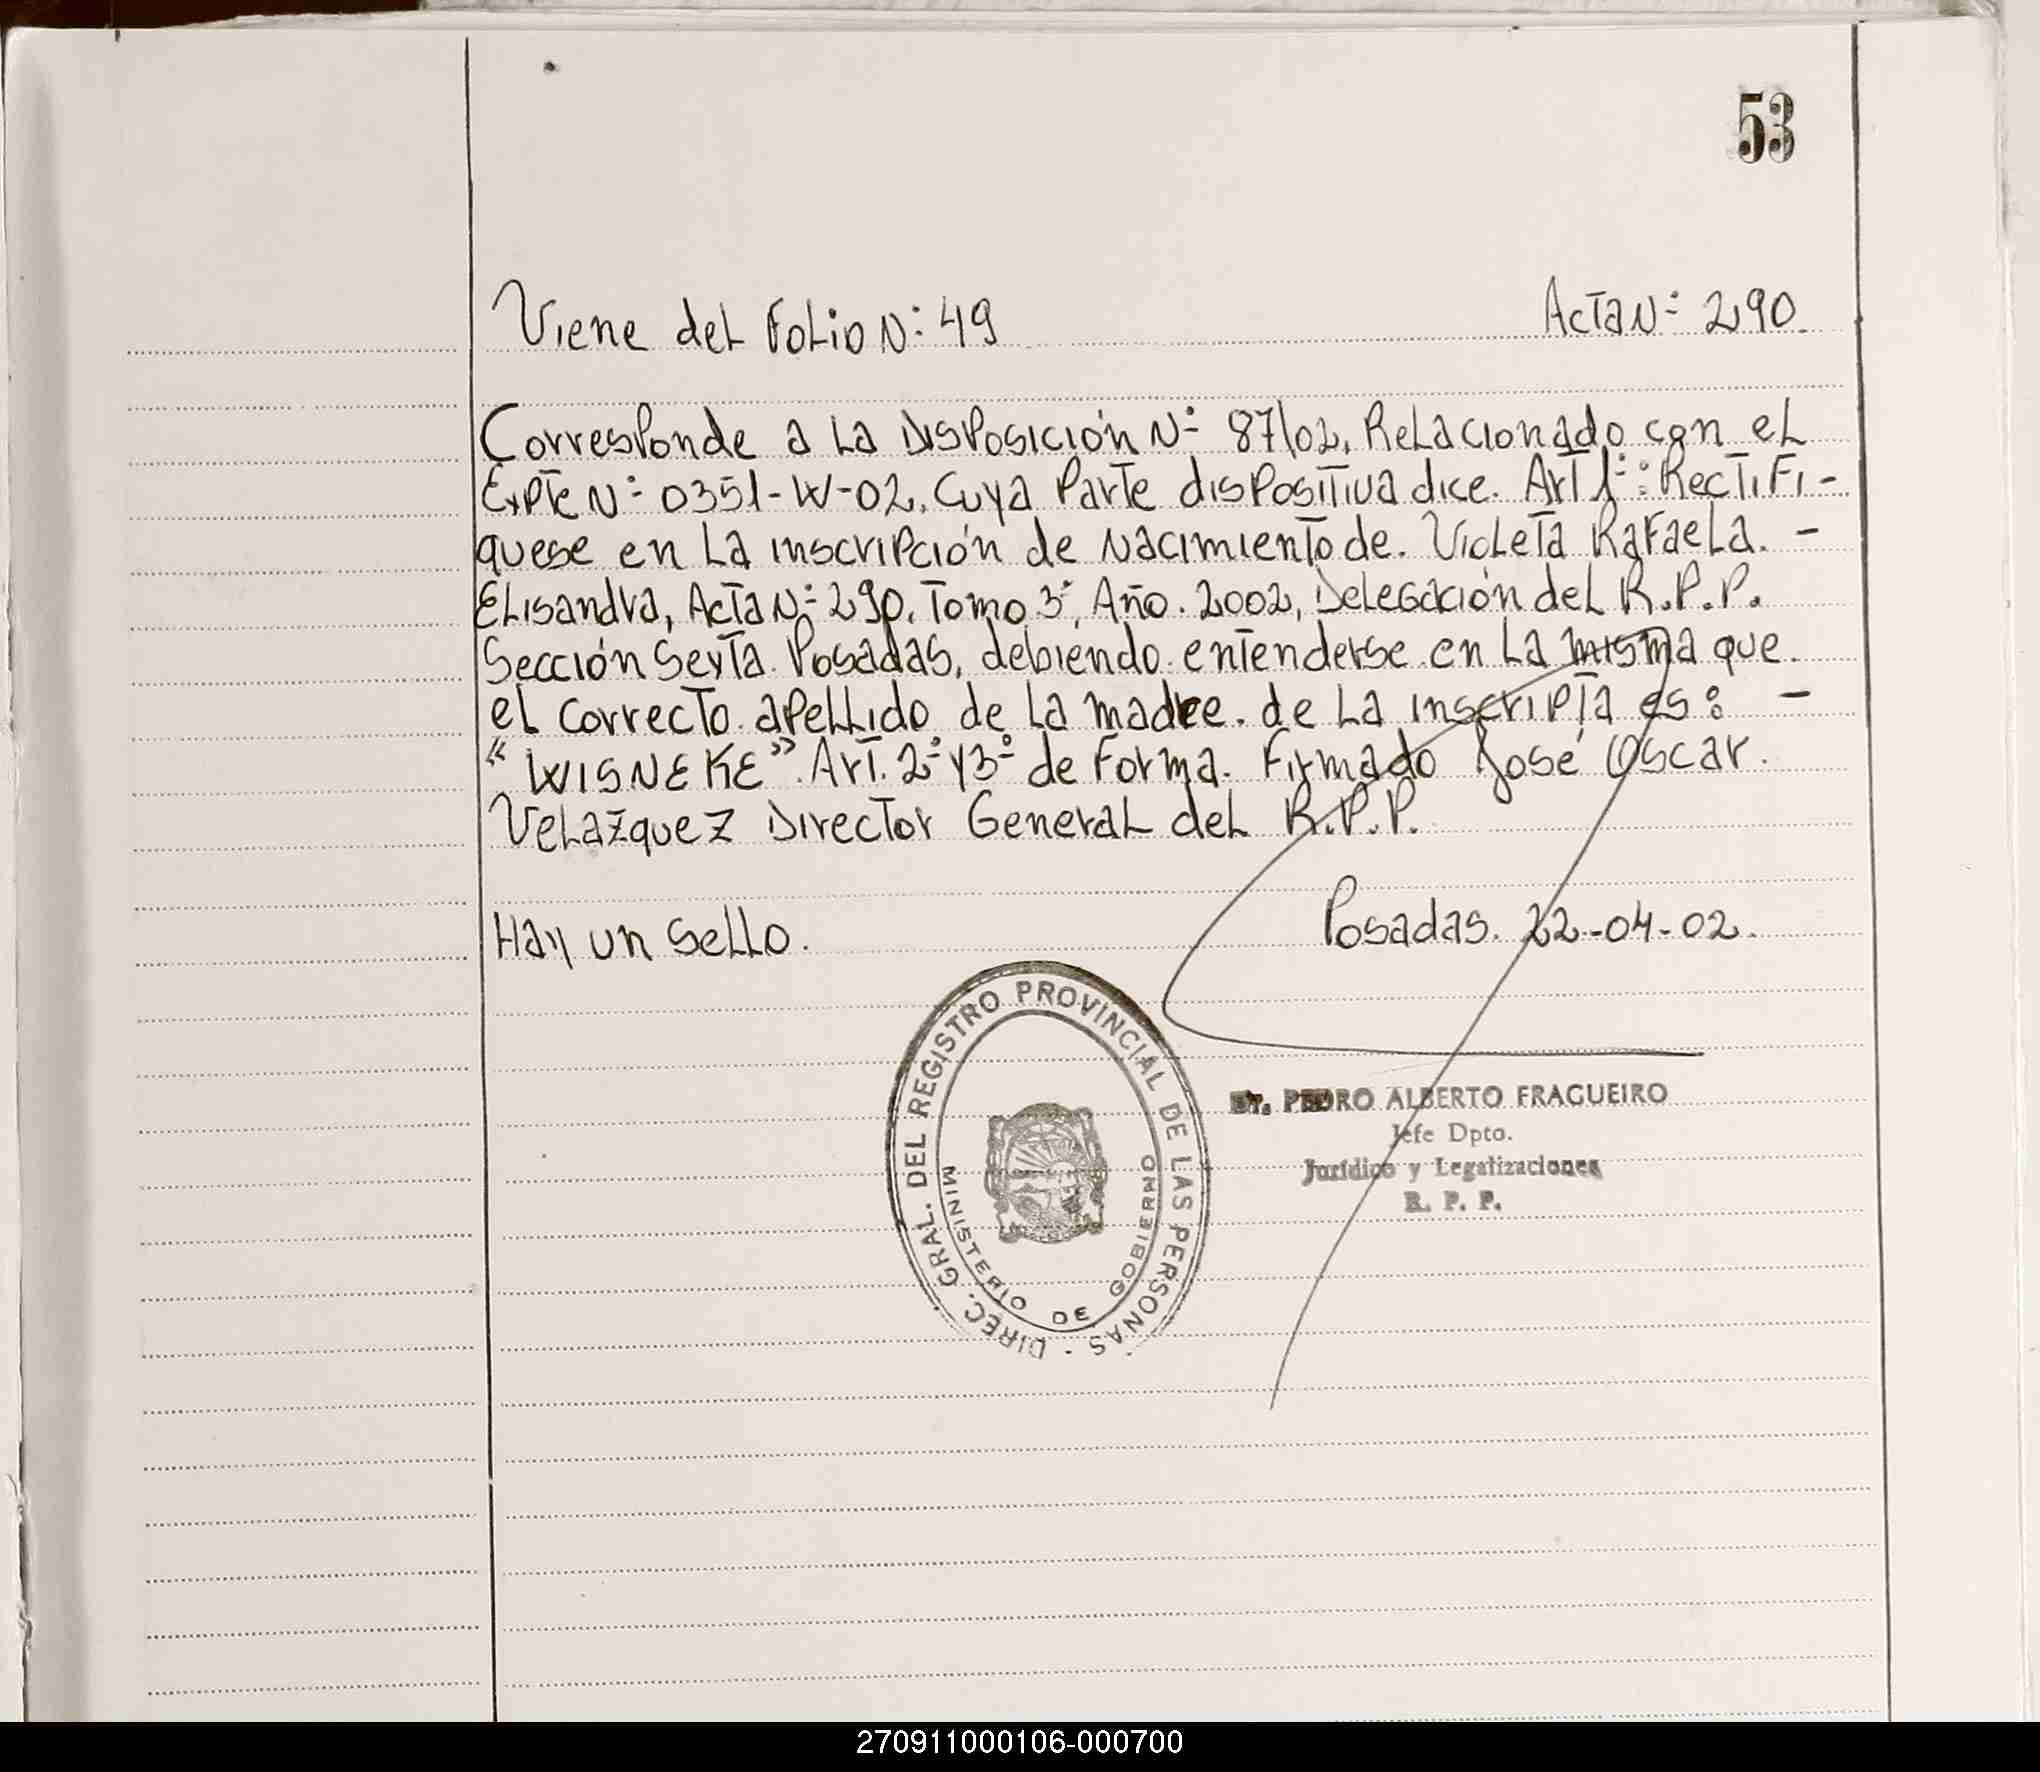 53
Viene del Folio N: 49 Acta N: 290.
Corresponde a la Disposición N: 87/02, Relacionado con el
Expte N: 0351-W-02, Cuya Parte dispositiva dice. Art 1º: Rectifi-
quese en la inscripción de Nacimiento de. Violeta Rafaela. -
Elisandra, Acta N: 290, Tomo 3º, Año. 2002, Delegación del R.P.P.
Sección Sexta Posadas, debiendo entenderse en la misma que
el correcto apellido de la madre. de la inscripta es: -
"WISNEKE". Art. 2º y 3º de Forma. Firmado José Oscar.
Velazquez Director General del R.P.P.
Hay un Sello. Posadas. 22-04-02.
DIREC. GRAL. DEL REGISTRO PROVINCIAL DE LAS PERSONAS
MINISTERIO DE GOBIERNO
Dr. PEDRO ALBERTO FRAGUEIRO
Jefe Dpto.
Jurídico y Legalizaciones
R. P. P.
270911000106-000700